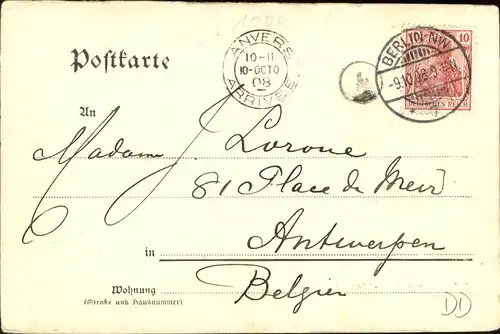 1000
Postkarte
ANVERS
10-11
10-OCTO
08
ARRIVEE
BERLIN N.W.
-9.10.08
10
DEUTSCHES REICH
An
Madame J. Lorone
81 Place de Meir
in Antwerpen
Wohnung
(Straße und Hausnummer)
Belgien
DD